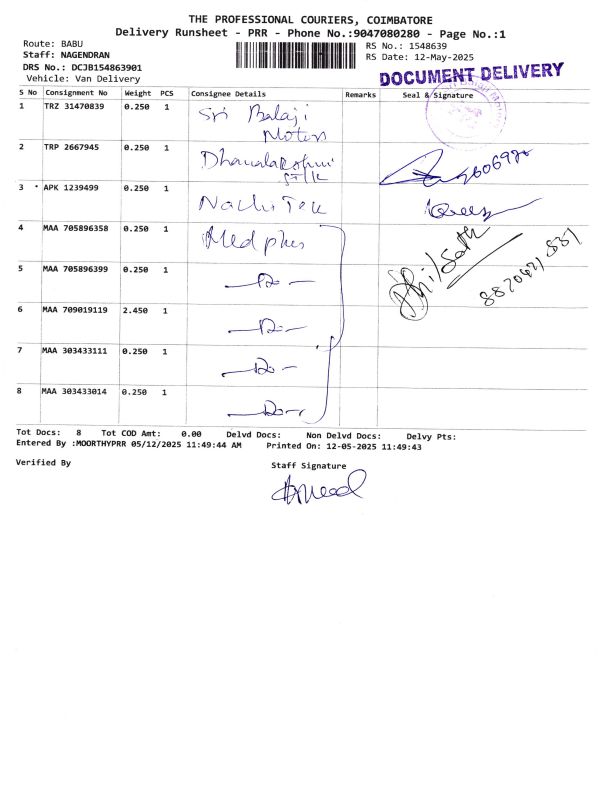 THE PROFESSIONAL COURIERS, COIMBATORE
Delivery Runsheet - PRR - Phone No.:9047080280 - Page No.:1
Route: BABU
Staff: NAGENDRAN
DRS No.: DCJB154863901
Vehicle: Van Delivery
RS No.: 1548639
RS Date: 12-May-2025
DOCUMENT DELIVERY
S No Consignment No Weight PCS Consignee Details Remarks Seal & Signature
1 TRZ 31470839 0.250 1 Sri Balaji
Motors
2 TRP 2667945 0.250 1 Dhanalakshmi
3 * APK 1239499 0.250 1
4 MAA 705896358 0.250 1 Medplus
5 MAA 705896399 0.250 1 -Do-
6 MAA 709019119 2.450 1 -Do-
7 MAA 303433111 0.250 1 -Do-
8 MAA 303433014 0.250 1 -Do-
Tot Docs: 8 Tot COD Amt: 0.00 Delvd Docs: Non Delvd Docs: Delvy Pts:
Entered By :MOORTHYPRR 05/12/2025 11:49:44 AM Printed On: 12-05-2025 11:49:43
Verified By
Staff Signature